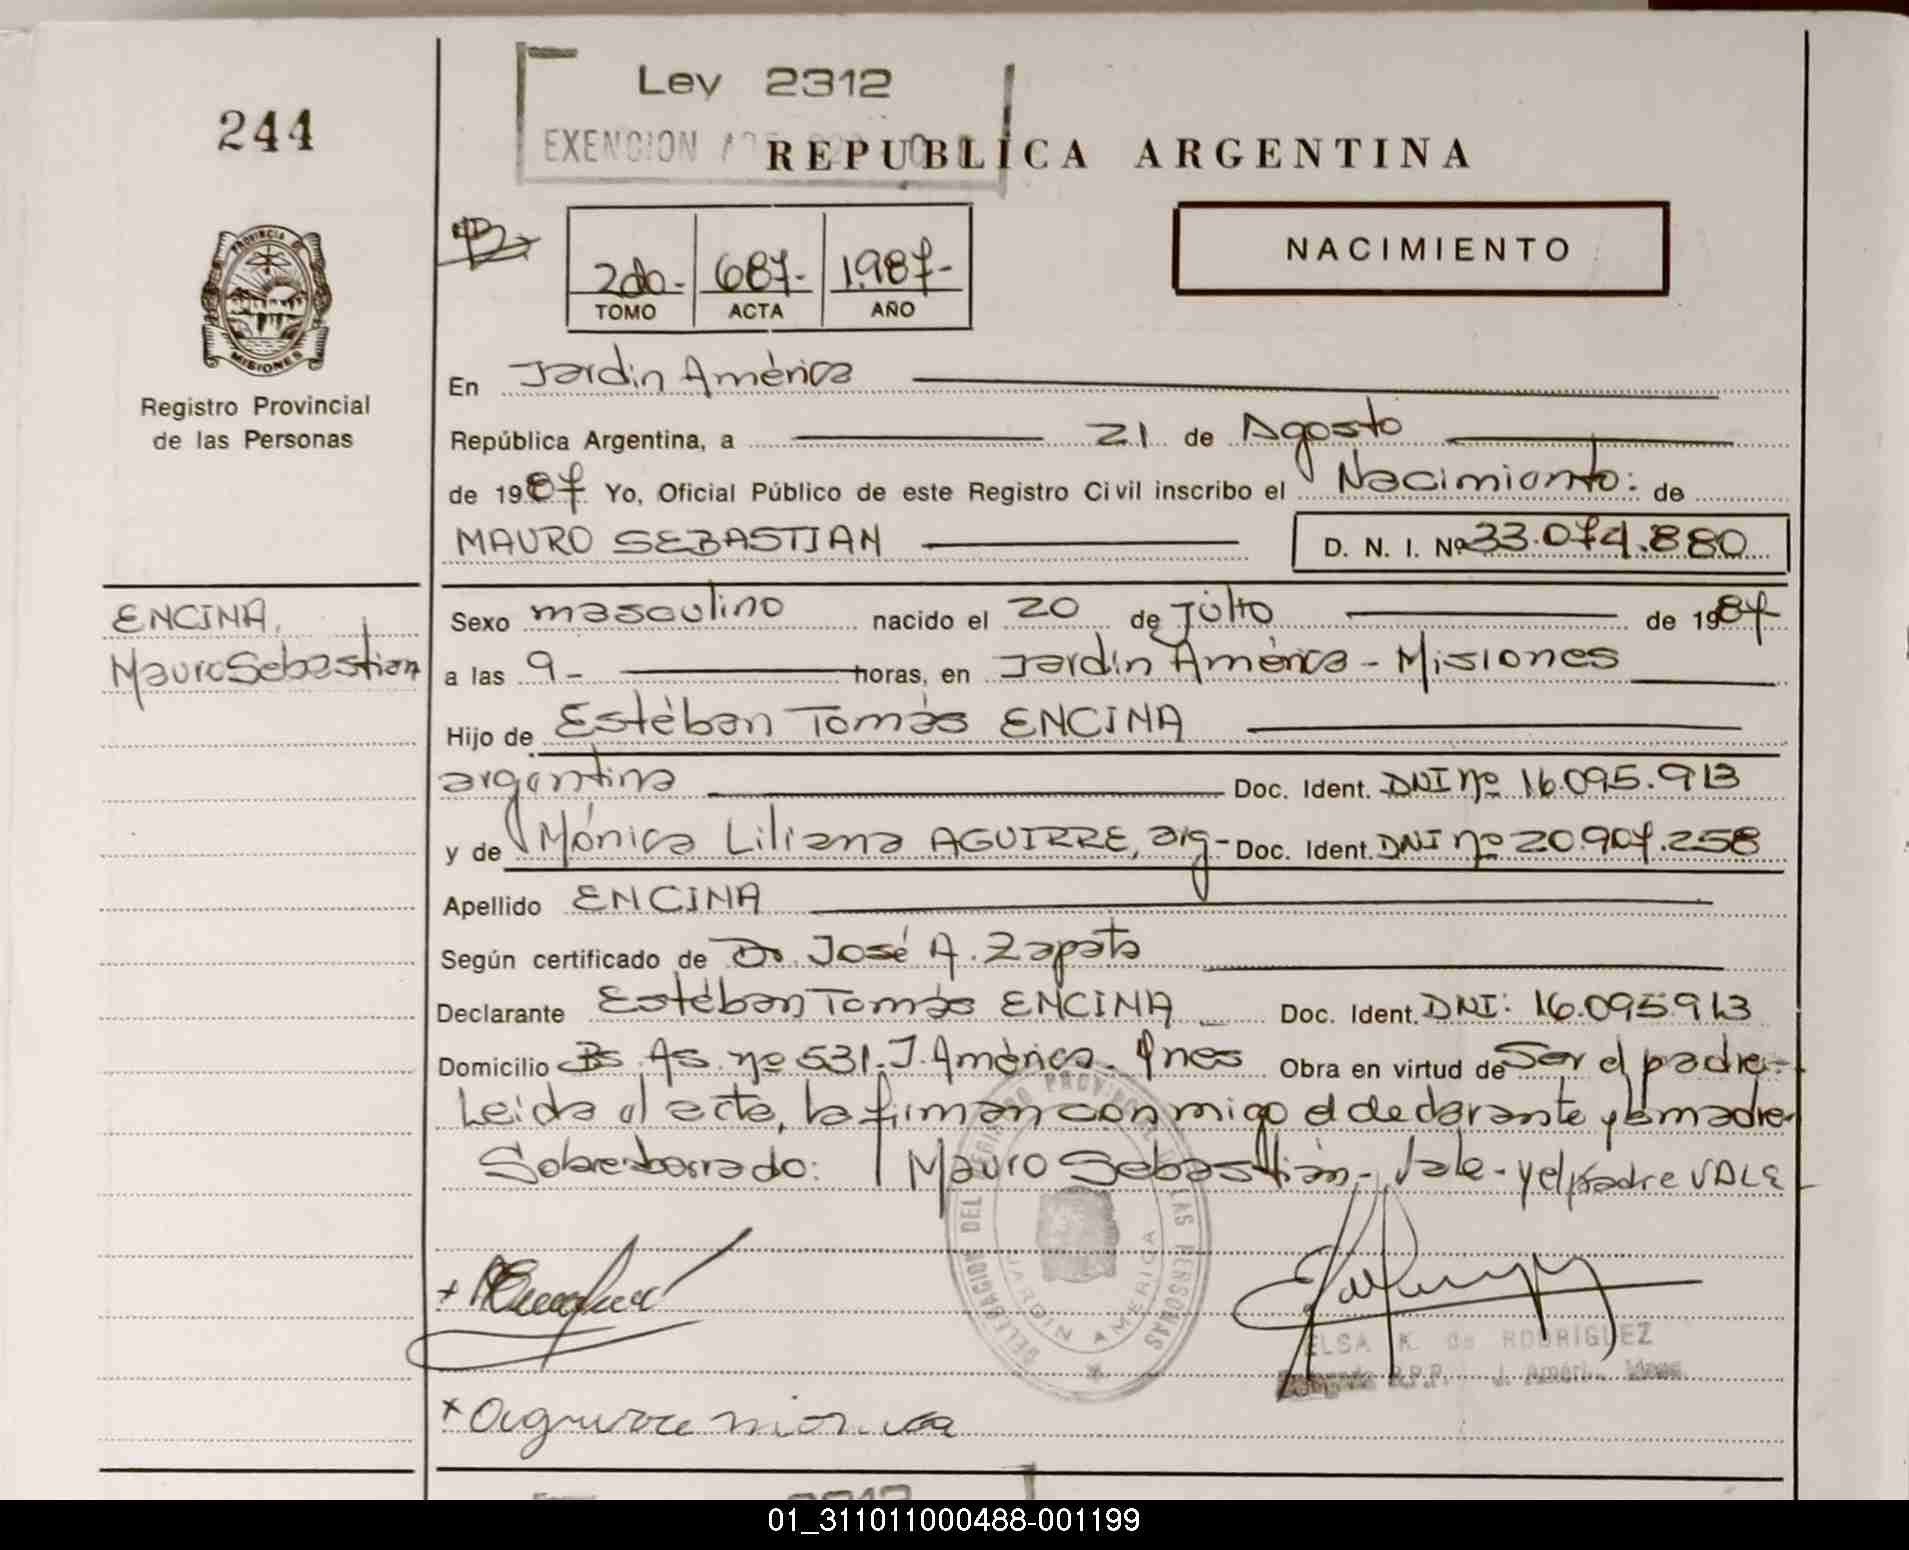 Ley 2312
244
EXENCION
REPUBLICA ARGENTINA
NACIMIENTO
2do.- 687- 1.987-
TOMO ACTA AÑO
PROVINCIA DE
MISIONES
Registro Provincial
de las Personas
En Jardin América
República Argentina, a 21 de Agosto
de 1987 Yo, Oficial Público de este Registro Civil inscribo el Nacimiento: de
MAURO SEBASTIAN D. N. I. Nº 33.074.880
ENCINA,
Mauro Sebastian
Sexo masculino nacido el 20 de Julio de 1987
a las 9- horas, en Jardin América - Misiones
Hijo de Estéban Tomás ENCINA
argentina Doc. Ident. DNI nº 16.095.913
y de Mónica Liliana AGUIRRE, arg- Doc. Ident. DNI nº 20.907.258
Apellido ENCINA
Según certificado de Dr. José A. Zapata
Declarante Estéban Tomás ENCINA Doc. Ident. DNI: 16.095913
Domicilio Bs. As. nº 531. J. América. Mnes Obra en virtud de Ser el padre.-
Leida el acta, la firman conmigo el declarante y la madre
Sobreborrado: Mauro Sebastián- Vale- y el padre VALE
DELEGACION DEL REGISTRO PROVINCIAL DE LAS PERSONAS
JARDIN AMERICA
ELSA K. de RODRIGUEZ
R.P.P. J. Améri.
x Aguirre monica
01_311011000488-001199